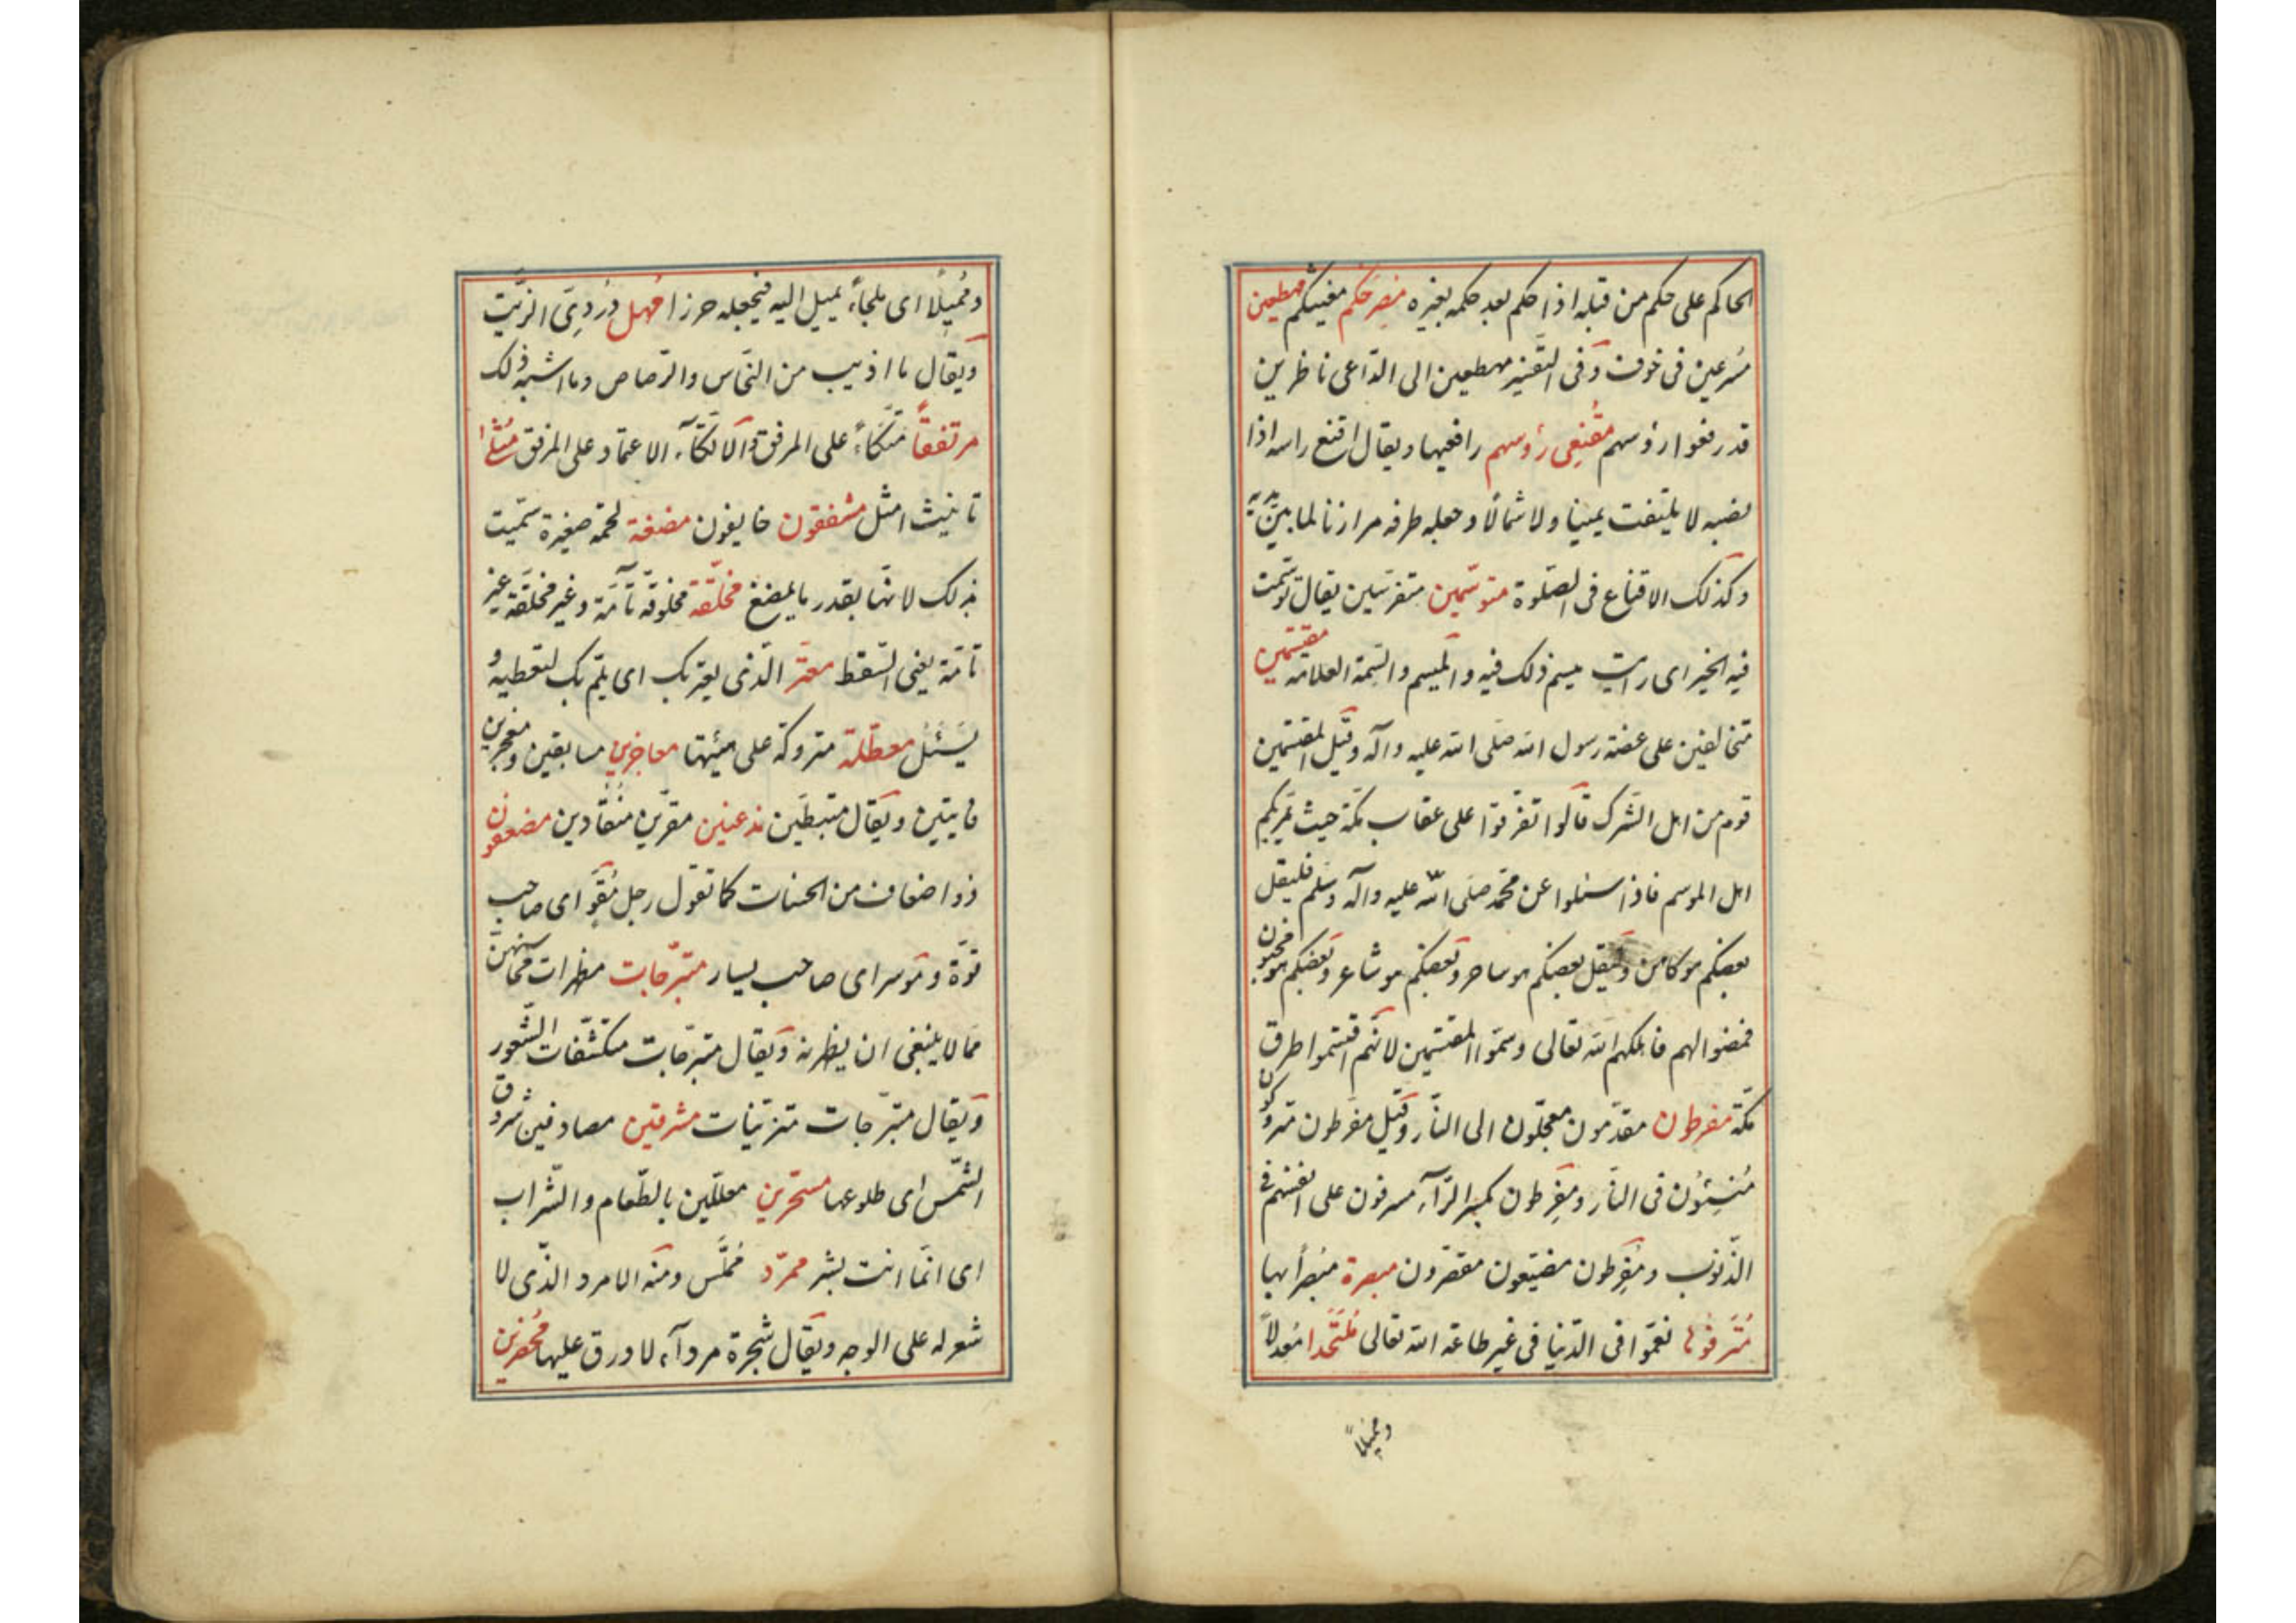 الحاكم على حكم من قبله اذا حكم بعد حكمه بغيره مُصرِخكم مغيثكم مهطعين
مُسرعين فى خوف وَفى التّفسير مهطعين الى الدّاعى ناظرين
قد رفعوا رؤسهم مُقنِعى رُؤسهم رافعيها ويقال اقنع راسه اذا
نصبه لا يلتفت يمينا ولا شمالًا وجعله طرفه موازنا لما بين يديه
وكذلك الاقناع فى الصّلوة متوسّمين متفرّسين يقال توسّمت
فيه الخير اى رايت ميسم ذلك فيه والميسم والسّمة العلامة مقتسمين
متخالفين على عضه رسول الله صلى الله عليه وآله وقيل المقتسمين
قوم من اهل الشّرك قالوا تفرّقوا على عقاب مكّة حيث يمرّ بكم
اهل الموسم فاذا سئلوا عن محمّد صلى الله عليه وآله وسلم فليقل
بعضكم هو كاهن وليقل بعضكم هو ساحر وبعضكم هو شاعر وبعضكم هو مجنون
فمضوا لهم فاهلكهم الله تعالى وسمّوا المقتسمين لانّهم اقتسموا طرق
مكّة مفرطون مقدّمون معجّلون الى النّار وقيل مفرطون متروكون
مُنسِيُّون فى النّار ومفرِطون بكسر الرّآء مسرفون على انفسهم فى
الذّنوب ومُفرّطون مضيّعون مقصّرون مبصرة مُبصرًا بها
مُترفوها نعّموا فى الدّنيا فى غير طاعة الله تعالى مُلتحدا مُعدلًا
ومميلًا
ومُميلًا اى ملجأً يميل اليه فيجعله حرزا مُهل دُردىّ الزّيت
ويقال ما اذيب من النّحاس والرّصاص وما اشبه ذلك
مرتفقًا متّكاءً على المرفق والاتّكآء الاعتماد على المرفق مُثلى
تانيث امثل مشفقون خايفون مضغة لحمة صغيرة سمّيت
بذلك لانّها بقدر ما يمضغ مخلّقة مخلوقة تآمّة وغير مخلّقة غير
تامّة يعنى السّقط معترّ الّذى يعتريك اى يلمّ بك لتعطيه و
يَسئل معطّلة متروكة على هيئتها معاجزين مسابقين ومعجزين
فايتين ويقال مثبطين مذعنين مقرّين مُنقادين مضعفون
ذوا ضعاف من الحسنات كما تقول رجل مُقوٍ اى صاحب
قوّة وموسر اى صاحب يسار متبرّجات مظهرات محاسنهنّ
ممّا لا ينبغى ان يظهرنه ويقال متبرّجات متكشّفات الشّعور
ويقال متبرّجات متزيّنات مشرقين مصادفين شروق
الشّمس اى طلوعها مسحّرين معلّلين بالطّعام والشّراب
اى انّما انت بشر ممرّد مُملَّس ومنه الامرد الّذى لا
شعر له على الوجه ويقال شجرة مردآء لا ورق عليها مُحضرين